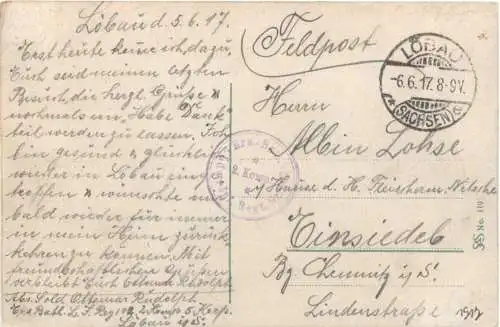 Löbau d. 5.6.17.
Erst heute komme ich dazu,
Euch seid meinen letzten
Besuch, die herzl. Grüße &
nochmals ein „Habe Dank"
teil werden zu lassen. Ich
bin gesund & glücklich
wieder in Löbau ein-
troffen & wünschte nur
bald wieder für immer
in mein Heim zurück-
kehren zu können. Mit
freundschaftlichen Grüßen
verbleibt Euer
Abs. Sold. Ottomar Rudolph
Ers. Batl. L. I. Reg. 102, 2. Komp. 5. Korp.
Löbau i/S.
Feldpost
LÖBAU
-6.6.17.8-9V.
(SACHSEN)
Herrn
Albin Lohse
2. Komp.
i/ Hause d. H.
Einsiedel
Bz. Chemnitz i/S.
Lindenstraße
1917